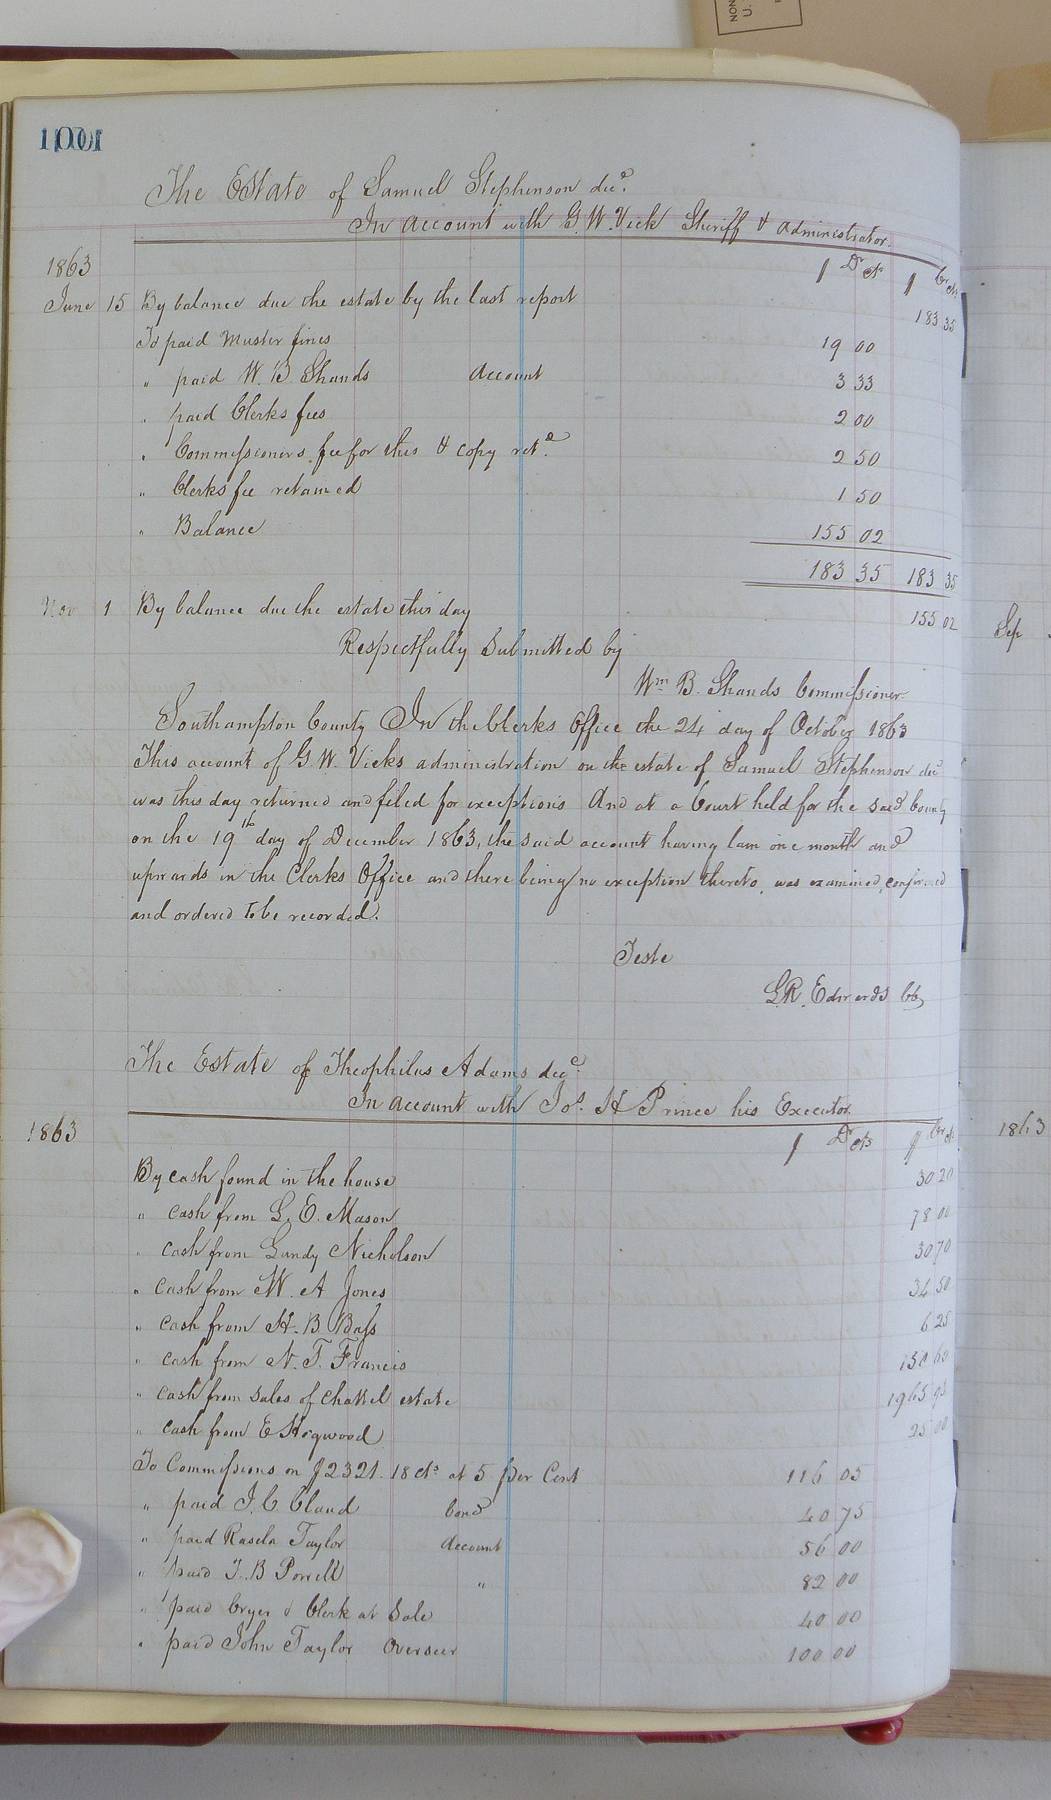 The Estate of Samuel Stephenson decd.
In account with G. W. Vick Sheriff & administrator.
1863 $ Dr cts $ Cr cts
June 15 By balance due the estate by the last report 183 35
To paid Muster fines 19 00
" paid W. B. Shands Account 3 33
" paid Clerks fees 2 00
" Commissioners fee for this & copy retd. 2 50
" Clerks fee retained 1 50
" Balance 155 02
183 35 183 35
Nov 1 By balance due the estate this day 155 02
Respectfully Submitted by
Wm B. Shands Commissioner
Southampton County In the Clerks Office the 24 day of October 1863
This account of G. W. Vicks administration on the estate of Samuel Stephenson decd
was this day returned and filed for exceptions And at a Court held for the said County
on the 19th day of December 1863, the said account having lain one month and
upwards in the Clerks Office and there being no exception thereto, was examined, confirmed
and ordered to be recorded.
Teste
L. R. Edwards CC
The Estate of Theophilus Adams decd.
In account with Jos. H Prince his Executor.
1863 $ Dr cts $ Cr cts
By cash found in the house 30 20
" cash from L. E. Mason 78 00
" cash from Lundy Nicholson 30 70
" cash from W. A Jones 34 50
" cash from H. B. Bass 6 25
" cash from N. T. Francis 150 60
" cash from sales of chattel estate 1965 93
" cash from E Hogwood 25 00
To Commissions on $2321. 18 cts at 5 per Cent 116 05
" paid J. C. Claud bond 40 75
" paid Taylor Account 56 00
" paid J. B Porrell " 82 00
" paid Cryer & Clerk at Sale 40 00
" paid John Taylor Overseer 100 00
Sep
1863